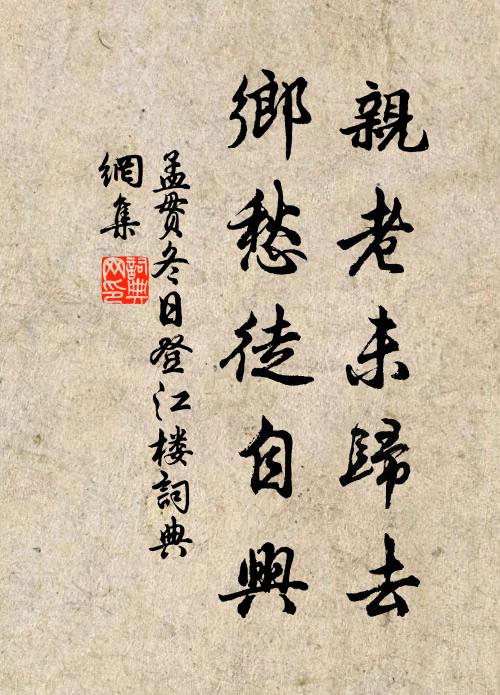 親老未歸去
鄉愁徒自興
孟贯冬日登江楼詞典
網集
詞典
网印